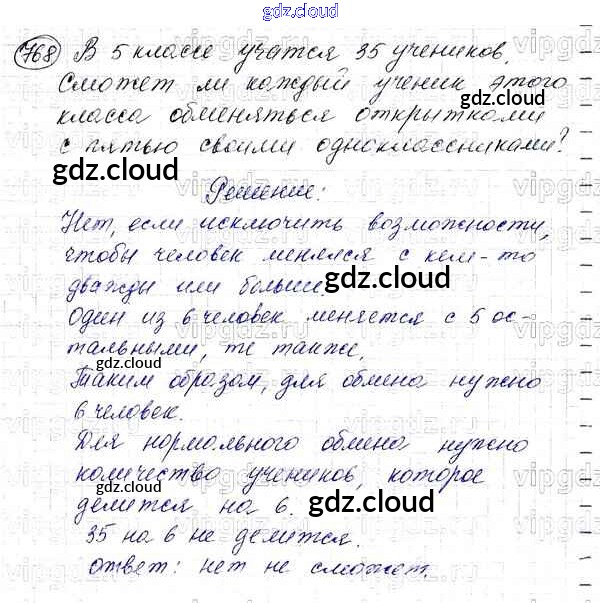 gdz.cloud
768 В 5 классе учатся 35 учеников.
Сможет ли каждый ученик этого
gdz.cloud
класса обменяться открытками
с пятью своими одноклассниками?
gdz.cloud
Решение:
Нет, если исключить возможности,
чтобы человек менялся с кем-то
дважды или больше.
gdz.cloud
Один из 6 человек меняется с 5 ос-
тальными, те также,
gdz.cloud
Таким образом, для обмена нужно
6 человек.
Для нормального обмена нужно
количество учеников, которое
gdz.cloud
делится на 6.
gdz.cloud
35 на 6 не делится.
ответ: нет не сможет.